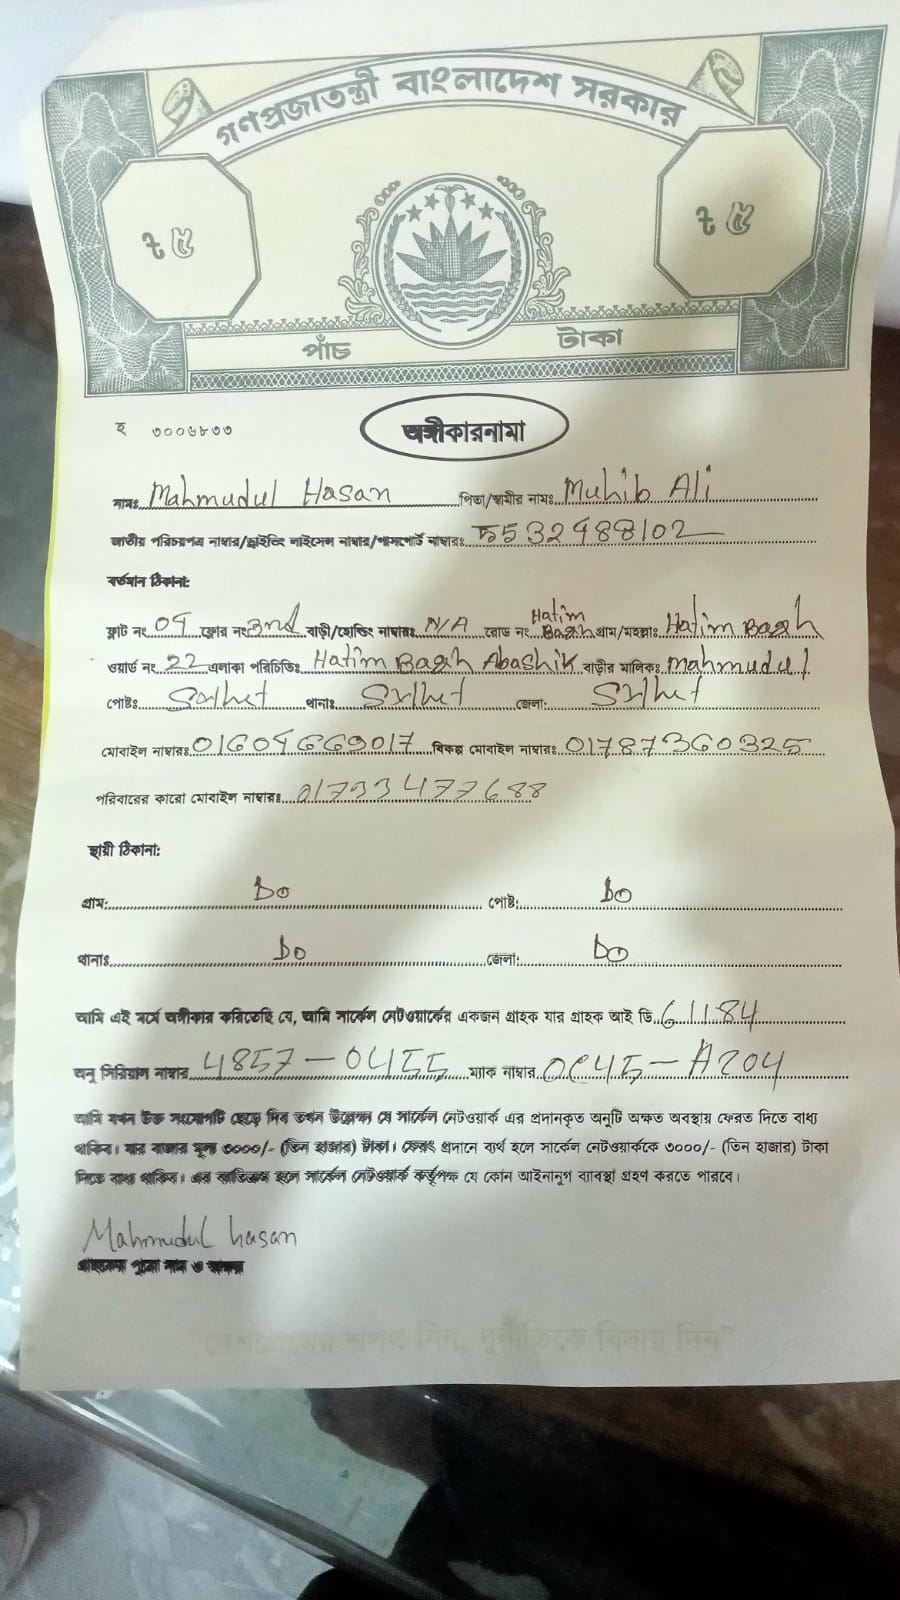 গণপ্রজাতন্ত্রী বাংলাদেশ সরকার
৳ ৫ ৳ ৫
পাঁচ টাকা
হ ৩০০৬৮৩৩
অঙ্গীকারনামা
নামঃ Mahmudul Hasan পিতা/স্বামীর নামঃ Muhib Ali
জাতীয় পরিচয়পত্র নাম্বার/ড্রাইভিং লাইসেন্স নাম্বার/পাসপোর্ট নাম্বারঃ
বর্তমান ঠিকানা:
ফ্লাট নং ফ্লোর নং 3rd বাড়ী/হোল্ডিং নাম্বারঃ N/A রোড নং Hatim Bagh গ্রাম/মহল্লাঃ Hatim Bagh
ওয়ার্ড নং 22 এলাকা পরিচিতিঃ Hatim Bagh Abashik বাড়ীর মালিকঃ Mahmudul
পোষ্টঃ Sylhet থানাঃ Sylhet জেলা: Sylhet
মোবাইল নাম্বারঃ বিকল্প মোবাইল নাম্বারঃ 01787360325
পরিবারের কারো মোবাইল নাম্বারঃ
স্থায়ী ঠিকানা:
গ্রাম: Do পোষ্ট: Do
থানাঃ Do জেলা: Do
আমি এই মর্মে অঙ্গীকার করিতেছি যে, আমি সার্কেল নেটওয়ার্কের একজন গ্রাহক যার গ্রাহক আই ডি 61184
অনু সিরিয়াল নাম্বার 4857-0455 ম্যাক নাম্বার 0C45-A204
আমি যখন উক্ত সংযোগটি ছেড়ে দিব তখন উল্লেক্ষ্য যে সার্কেল নেটওয়ার্ক এর প্রদানকৃত অনুটি অক্ষত অবস্থায় ফেরত দিতে বাধ্য
থাকিব। যার বাজার মূল্য ৩০০০/- (তিন হাজার) টাকা। ফেরৎ প্রদানে ব্যর্থ হলে সার্কেল নেটওয়ার্ককে ৩০০০/- (তিন হাজার) টাকা
দিতে বাধ্য থাকিব। এর ব্যতিক্রম হলে সার্কেল নেটওয়ার্ক কর্তৃপক্ষ যে কোন আইনানুগ ব্যাবস্থা গ্রহণ করতে পারবে।
Mahmudul hasan
গ্রাহকের পুরো নাম ও স্বাক্ষর
শপথ নিন, দুর্নীতিকে বিদায় দিন"